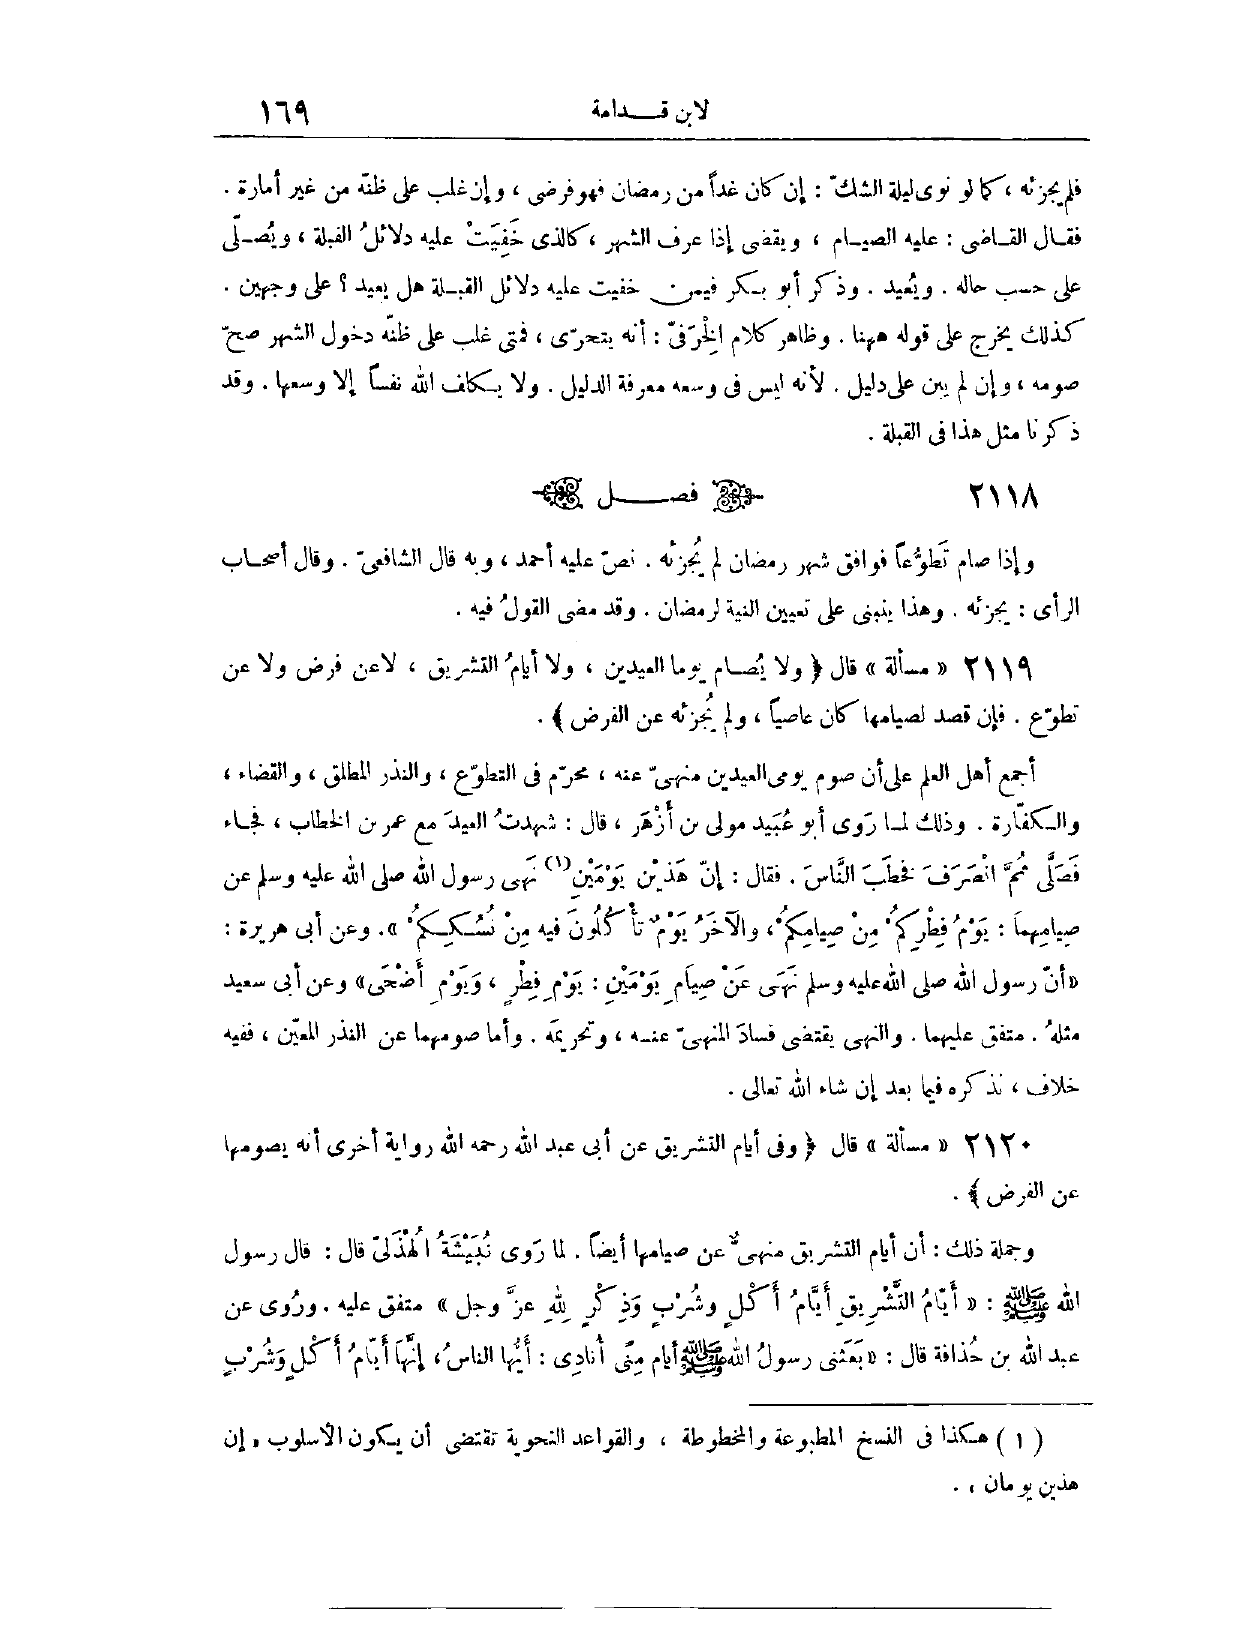 لابن قدامة ١٦٩
فلم يجزئه ، كما لو نوى ليلة الشكّ : إن كان غداً من رمضان فهو فرضى ، وإن غلب على ظنّه من غير أمارة .
فقال القاضى : عليه الصيام ، ويقضى إذا عرف الشهر ، كالذى خَفِيَتْ عليه دلائلُ القبلة ، ويُصلّى
على حسب حاله . ويُعيد . وذكر أبو بكر فيمن خفيت عليه دلائل القبلة هل يعيد ؟ على وجهين .
كذلك يخرج على قوله ههنا . وظاهر كلام الخِرَقىّ : أنه يتحرّى ، فمتى غلب على ظنّه دخول الشهر صحّ
صومه ، وإن لم يبن على دليل . لأنه ليس فى وسعه معرفة الدليل . ولا يكلف الله نفساً إلا وسعها . وقد
ذكرنا مثل هذا فى القبلة .
٢١١٨ فصل
وإذا صام تَطوُّعاً فوافق شهر رمضان لم يُجزئه . نصّ عليه أحمد ، وبه قال الشافعىّ . وقال أصحاب
الرأى : يجزئه . وهذا ينبنى على تعيين النية لرمضان . وقد مضى القولُ فيه .
٢١١٩ « مسألة » قال ﴿ ولا يُصام يوما العيدين ، ولا أيامُ التشريق ، لا عن فرض ولا عن
تطوّع . فإن قصد لصيامها كان عاصياً ، ولم يُجزئه عن الفرض ﴾ .
أجمع أهل العلم على أن صوم يومى العيدين منهىّ عنه ، محرّم فى التطوّع ، والنذر المطلق ، والقضاء ،
والكفّارة . وذلك لما رَوى أبو عُبَيد مولى بن أَزْهَر ، قال : شهدتُ العيدَ مع عمر بن الخطاب ، فجاء
فَصَلَّى ثُمَّ انْصَرَفَ فخطَبَ النَّاسَ . فقال : إنّ هَذَيْنِ يَوْمَيْنِ (١) نَهَى رسول الله صلى الله عليه وسلم عن
صيامِهِمَا : يَوْمُ فِطْرِكُمْ مِنْ صِيامِكُمْ ، والآخَرُ يَوْمٌ تأْكُلُونَ فيه مِنْ نُسُكِكُمْ » . وعن أبى هريرة :
« أنّ رسول الله صلى الله عليه وسلم نَهَى عَنْ صِيَامِ يَوْمَيْنِ : يَوْمِ فِطْرٍ ، وَيَوْمِ أَضْحَى » وعن أبى سعيد
مثلهُ . متفق عليهما . والنهى يقتضى فسادَ المنهىّ عنه ، وتحريمَه . وأما صومهما عن النذر المعيّن ، ففيه
خلاف ، نذكره فيما بعد إن شاء الله تعالى .
٢١٢٠ « مسألة » قال ﴿ وفى أيام التشريق عن أبى عبد الله رحمه الله رواية أخرى أنه يصومها
عن الفرض ﴾ .
وجملة ذلك : أن أيام التشريق منهىٌّ عن صيامها أيضاً . لما رَوى نُبَيْشَةُ الهُذَلىّ قال : قال رسول
الله ﷺ : « أَيّامُ التَّشْرِيقِ أَيَّامُ أَكْلٍ وشُرْبٍ وَذِكْرٍ لِلهِ عزَّ وجل » متفق عليه . ورُوى عن
عبد الله بن حُذافة قال : « بَعَثنى رسولُ الله ﷺ أيام مِنًى أُنادِى : أَيُّها الناسُ ، إنَّهَا أَيّامُ أَكْلٍ وَشُرْبٍ
( ١ ) هكذا فى النسخ المطبوعة والمخطوطة ، والقواعد النحوية تقتضى أن يكون الأسلوب « إن
هذين يومان » .